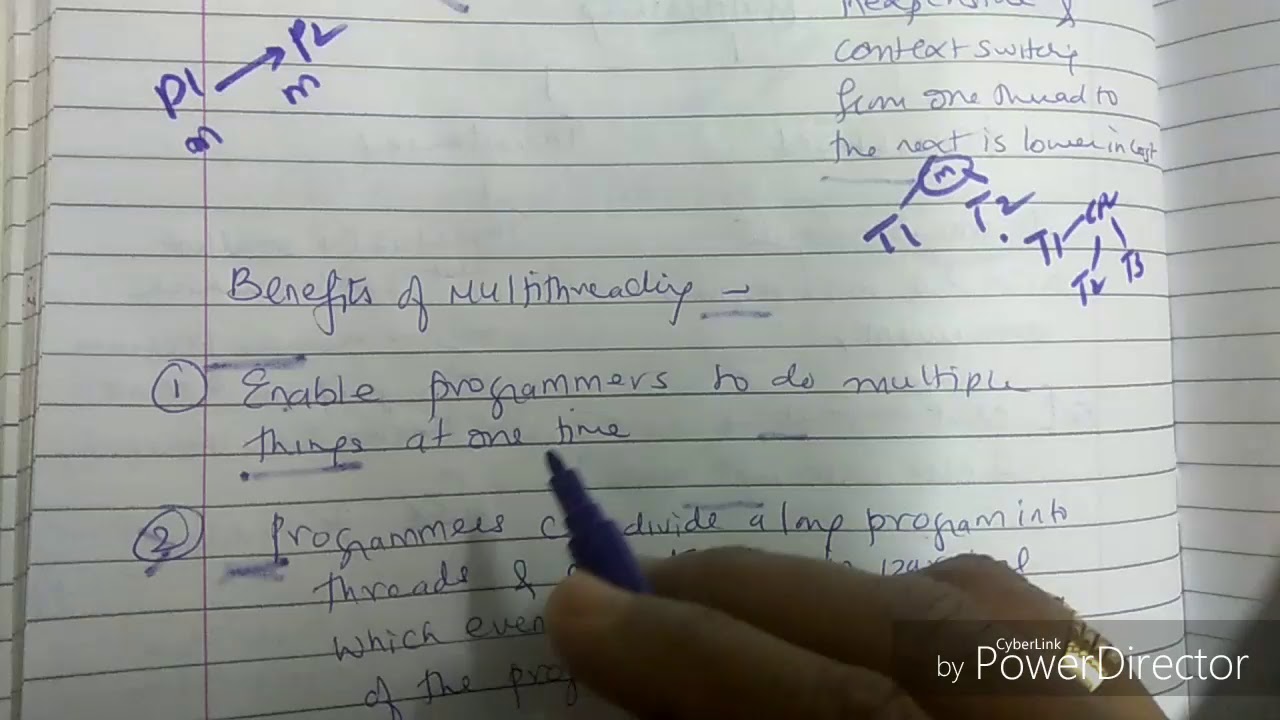 context switchig
from one thread to
the next is lower in cost
P1 P2
m m
m
T1 T2
T1 T2 T3
Benefits of Multithreading -
1 Enable programmers to do multiple
things at one time
2 Programmers divide a long program into
threads &
which even
of the prog
CyberLink
by PowerDirector